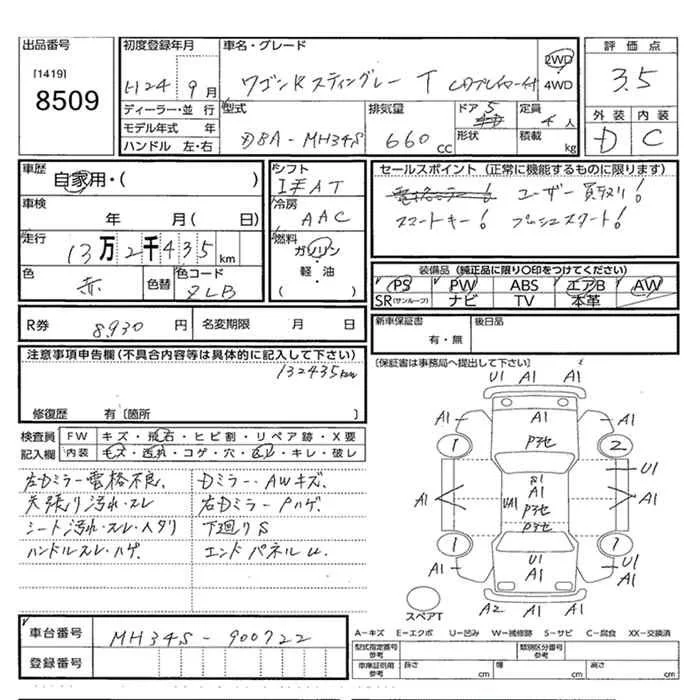 出品番号
[1419]
8509
初度登録年月
H24年9月
ディーラー・並行
モデル年式 年
ハンドル 左・右
車名・グレード
ワゴンR スティングレー T CDプレーヤー付
2WD
4WD
型式
DBA-MH34S
排気量
660 cc
ドア 5
形状
定員
4人
積載
kg
評価点
3.5
外装 内装
D C
車歴
自家用・( )
車検
年 月( 日)
走行
13万2千435km
色
赤
色替
色コード
ZLB
シフト
IチAT
冷房
AAC
燃料
ガソリン
軽・油
( )
セールスポイント(正常に機能するものに限ります)
ユーザー買取り!
スマートキー! プッシュスタート!
装備品(純正品に限り〇印をつけてください)
PS PW ABS エアB AW
SR(サンルーフ) ナビ TV 本革
R券 8930円 名変期限 月 日
新車保証書
有・無
後日品
[保証書は事務局へ提出して下さい]
注意事項申告欄(不具合内容等は具体的に記入して下さい)
132435km
修復歴 有〔箇所 〕
検査員
記入欄
FW キズ・飛石・ヒビ割・リペア跡・X要
内装 キズ・汚れ・コゲ・穴・・キレ・破レ
左Dミラー電格不良.
天張り汚れ・スレ
シート汚れ・スレ・ヘタリ
ハンドルスレ・ハゲ.
Dミラー・AWキズ.
右DミラーPハゲ.
下廻りS
エンドパネルU.
U1 A1 A1
A1 A1 A1
1 2
P3セ
U1
A1 A1 UA1 A1 A1
P3セ
P3セ
1 1
A1 U1 A1
A1
A2 A1
スペアT
A-キズ E-エクボ U-凹み W-補修跡 S-サビ C-腐食 XX-交換済
車台番号
MH34S-900722
登録番号
型式指定番号
参考
類別区分番号
参考
車庫証明用
参考
長さ cm 幅 cm 高さ cm